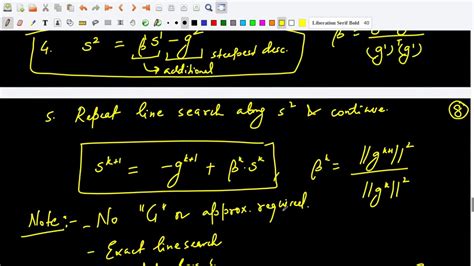 Liberation Serif Bold 40
4. s² = βs¹ - g² steepest desc.
additional
(g¹)ᵀ(g¹)
5. Repeat line search along s² & continue. ⑧
sᵏ⁺¹ = -gᵏ⁺¹ + βᵏ.sᵏ , βᵏ = ||gᵏ⁺¹||² / ||gᵏ||²
Note:- - No "G" or approx. required.
- Exact line search